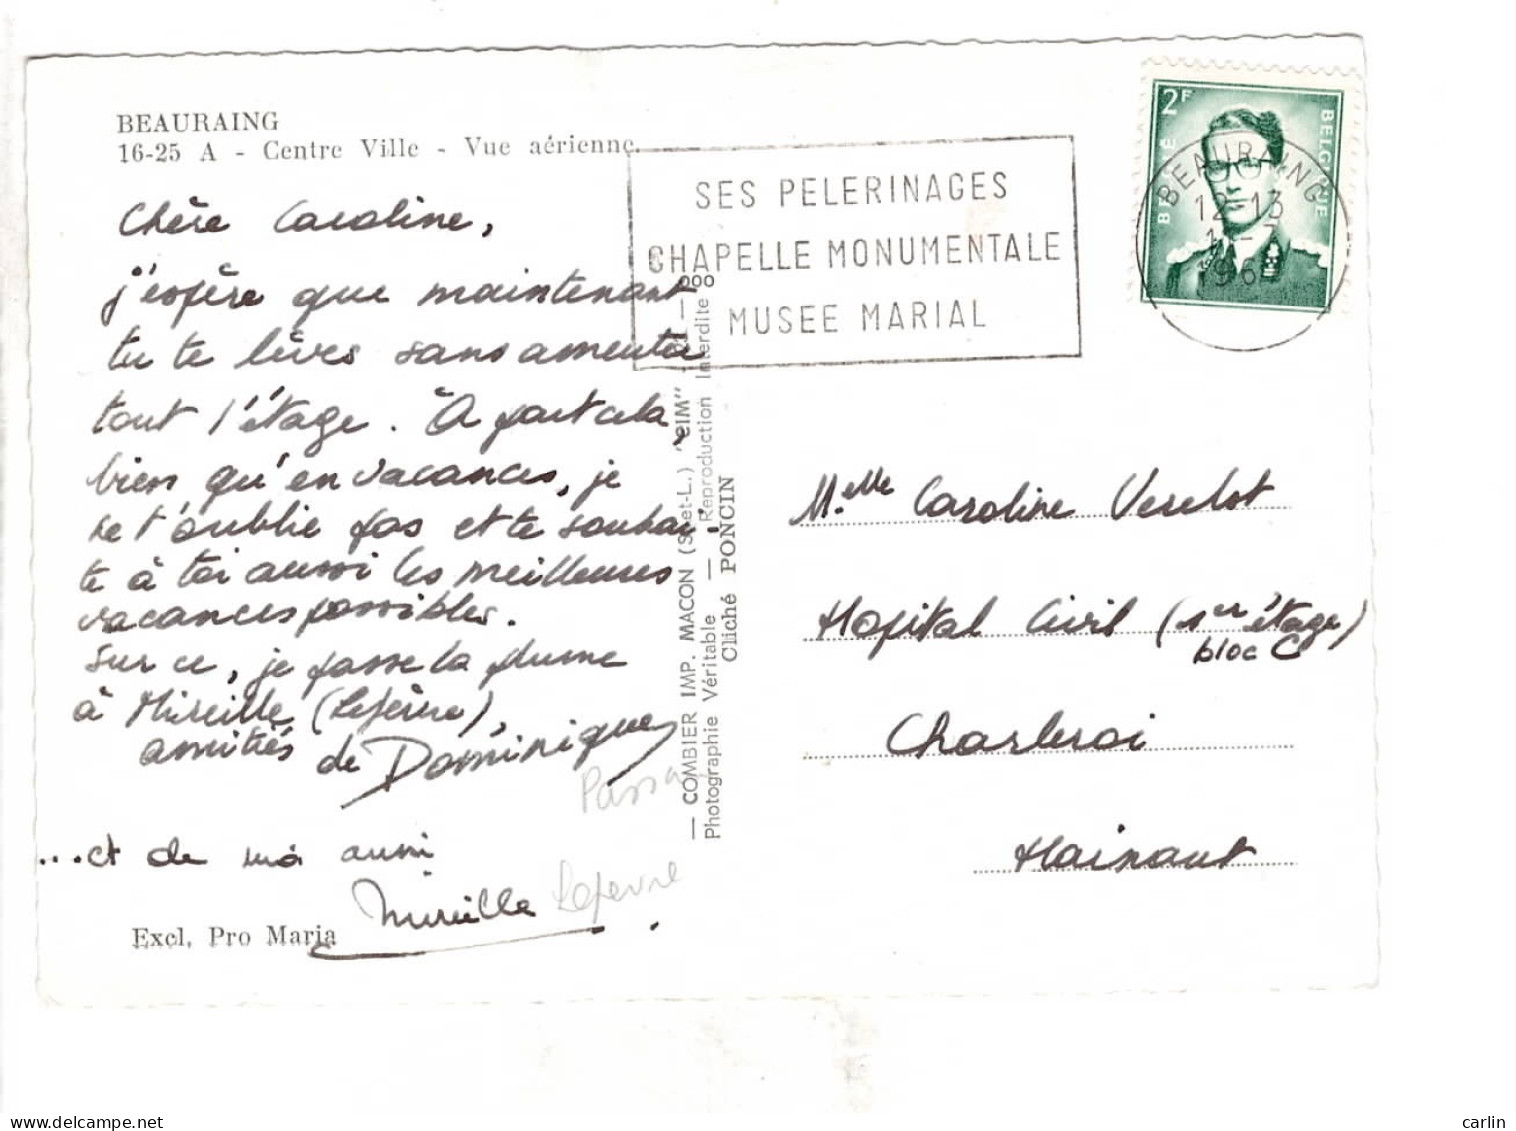 BEAURAING
16-25 A - Centre Ville - Vue aérienne
Chère Caroline,
j'espère que maintenant
tu te lèves sans ameuter
tout l'étage. À part cela,
bien qu'en vacances, je
ne t'oublie pas et te souhai-
te à toi aussi les meilleures
vacances possibles.
Sur ce, je passe la plume
à Mireille (Lefèvre),
amitiés
de Dominique
...et de moi aussi
Mireille Lefevre
Excl. Pro Maria
— COMBIER IMP. MACON (S.-et-L.) "CIM"
Photographie Véritable — Reproduction Interdite
Cliché PONCIN
SES PELERINAGES
CHAPELLE MONUMENTALE
MUSEE MARIAL
2F
BELGIË
BELGIQUE
BEAURAING
12-13
Melle Caroline Verelst
Hopital Civil (1er étage)
bloc C
Charleroi
Hainaut
delcampe.net
carlin